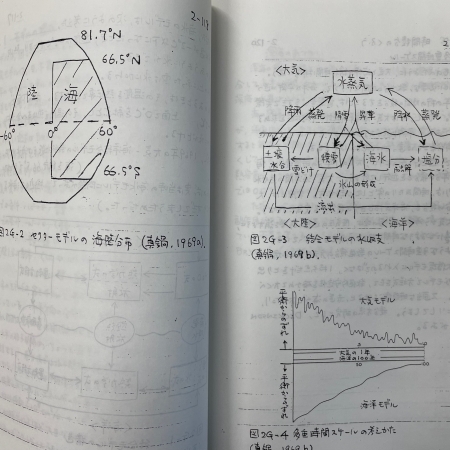 2-119
81.7°N
66.5°N
陸 海
-60° 0° 60°
66.5°S
図2G-2 セクターモデルの海陸分布 (真鍋, 1969a).
<大気>
水蒸気
降雨 蒸発 降雪 昇華 降水 蒸発
土壌水分 雪どけ 積雪 海氷 塩分
氷山の形成
流出
<大陸> <海洋>
図2G-3 結合モデルの水収支
(真鍋, 1969b).
平衡からのずれ
大気モデル
大気の1年
海洋の100年
平衡からのずれ
海洋モデル
図2G-4 多重時間スケールの考えかた
(真鍋, 1969b)